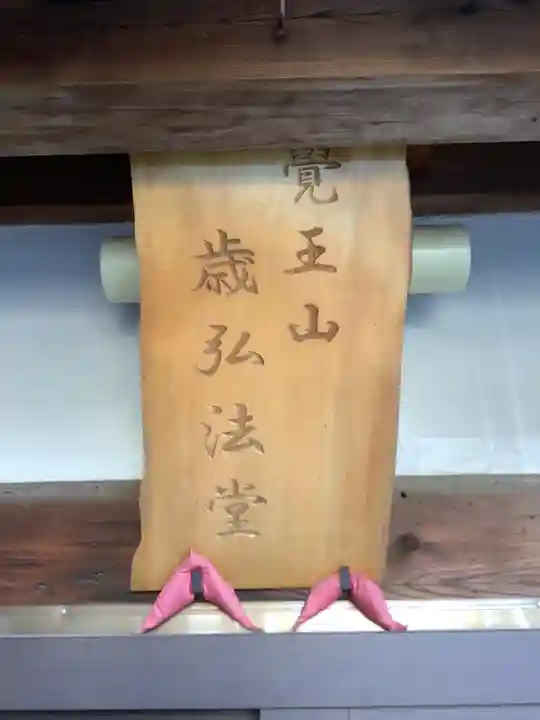 覺王山
歳弘法堂